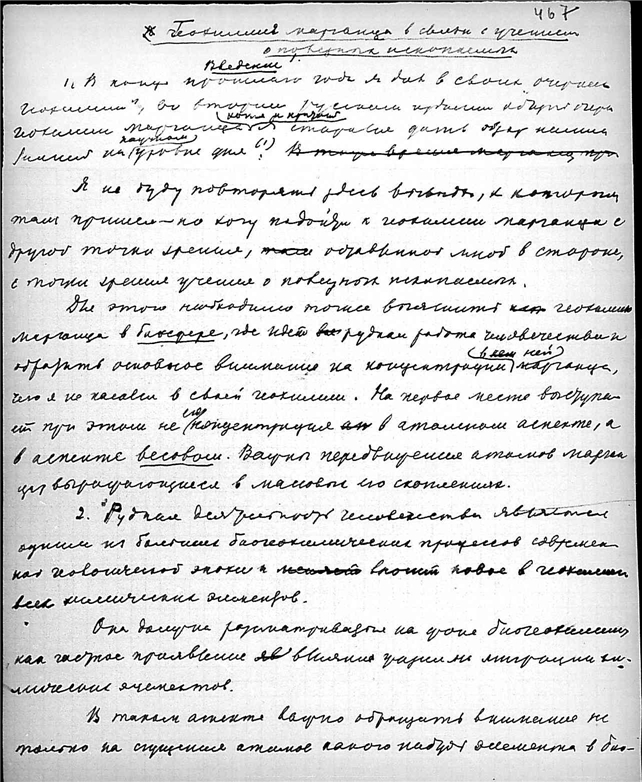 467
Геохимия марганца в связи с учением
о полезных ископаемых
Введение
1. В конце прошлого года я дал в своих "Очерках
геохимии", во втором русском издании
геохимии марганца стараясь дать образ наших
знаний на уровне дня (1)
Я не буду повторять здесь выводы, к которым
там пришел – но хочу подойти к геохимии марганца с
другой точки зрения, оставленной мной в стороне,
с точки зрения учения о полезных ископаемых.
Для этого необходимо точнее выяснить геохимию
марганца в биосфере, где идет рудная работа человечества и
обратить основное внимание на концентрации в ней марганца,
чего я не касался в своей геохимии. На первое место выступа-
ет при этом не концентрация в атомном аспекте, а
в аспекте весовом. Важны передвижения атомов марган-
ца, выражающиеся в массовом его скоплении.
2. Рудная деятельность человечества является
одним из больших биогеохимических процессов современ-
ной геологической эпохи и вносит новое в геохимию
всех химических элементов.
Она должна рассматриваться на фоне биогеохимии
как частное проявление влияния на миграции хи-
мических элементов.
В таком аспекте важно обращать внимание не
только на сгущение атомов какого нибудь элемента в био-